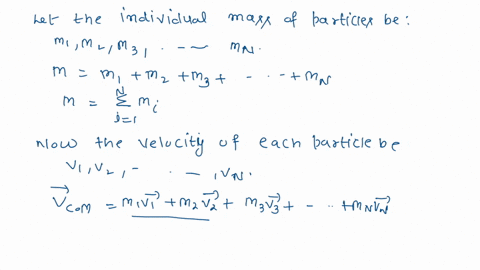 Let the individual mass of particles be:
m1, m2, m3, - - ~ mN.
m = m1 + m2 + m3 + - - - + mN
m = N∑i=1 mi
Now the velocity of each particle be
v1, v2, - - - , vN.
V⃗com = m1v⃗1 + m2v⃗2 + m3v⃗3 + - - - + mNv⃗N